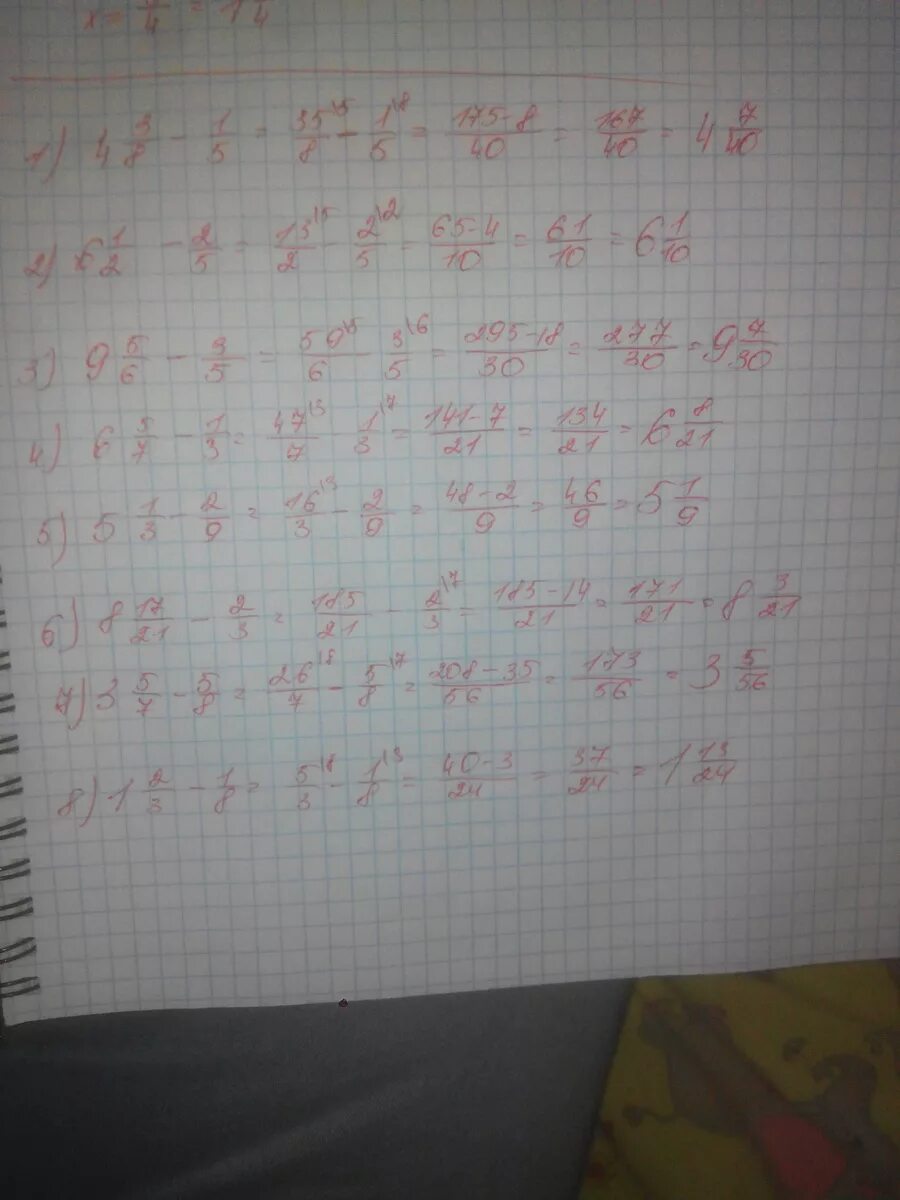 x = 7/4 = 1 /4
1) 4 3/8 - 1/5 = 35\5/8 - 1\8/5 = 175-8/40 = 167/40 = 4 7/40
2) 6 1/2 - 2/5 = 13\5/2 - 2\2/5 = 65-4/10 = 61/10 = 6 1/10
3) 9 5/6 - 3/5 = 59\5/6 - 3\6/5 = 295-18/30 = 277/30 = 9 7/30
4) 6 5/7 - 1/3 = 47\3/7 - 1\7/3 = 141-7/21 = 134/21 = 6 8/21
5) 5 1/3 - 2/9 = 16\3/3 - 2/9 = 48-2/9 = 46/9 = 5 1/9
6) 8 17/21 - 2/3 = 185/21 - 2\7/3 = 185-14/21 = 171/21 = 8 3/21
7) 3 5/7 - 5/8 = 26\8/7 - 5\7/8 = 208-35/56 = 173/56 = 3 5/56
8) 1 2/3 - 1/8 = 5\8/3 - 1\3/8 = 40-3/24 = 37/24 = 1 13/24